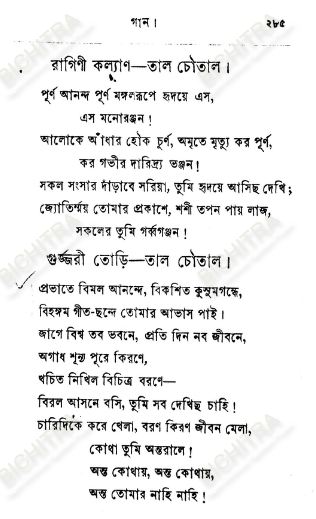 গান। ২৮৫
রাগিণী কল্যাণ—তাল চৌতাল।
পূর্ণ আনন্দ পূর্ণ মঙ্গলরূপে হৃদয়ে এস,
এস মনোরঞ্জন!
আলোকে আঁধার হৌক চূর্ণ, অমৃতে মৃত্যু কর পূর্ণ,
কর গভীর দারিদ্র্য ভঞ্জন!
সকল সংসার দাঁড়াবে সরিয়া, তুমি হৃদয়ে আসিছ দেখি;
জ্যোতির্ম্ময় তোমার প্রকাশে, শশী তপন পায় লাজ,
সকলের তুমি গর্ব্বগঞ্জন!
গুর্জ্জরী তোড়ি—তাল চৌতাল।
প্রভাতে বিমল আনন্দে, বিকশিত কুসুমগন্ধে,
বিহঙ্গম গীত-ছন্দে তোমার আভাস পাই।
জাগে বিশ্ব তব ভবনে, প্রতি দিন নব জীবনে,
অগাধ শূন্য পূরে কিরণে,
খচিত নিখিল বিচিত্র বরণে—
বিরল আসনে বসি, তুমি সব দেখিছ চাহি!
চারিদিকে করে খেলা, বরণ কিরণ জীবন মেলা,
কোথা তুমি অন্তরালে!
অন্ত কোথায়, অন্ত কোথায়,
অন্ত তোমার নাহি নাহি!
BICHITRA